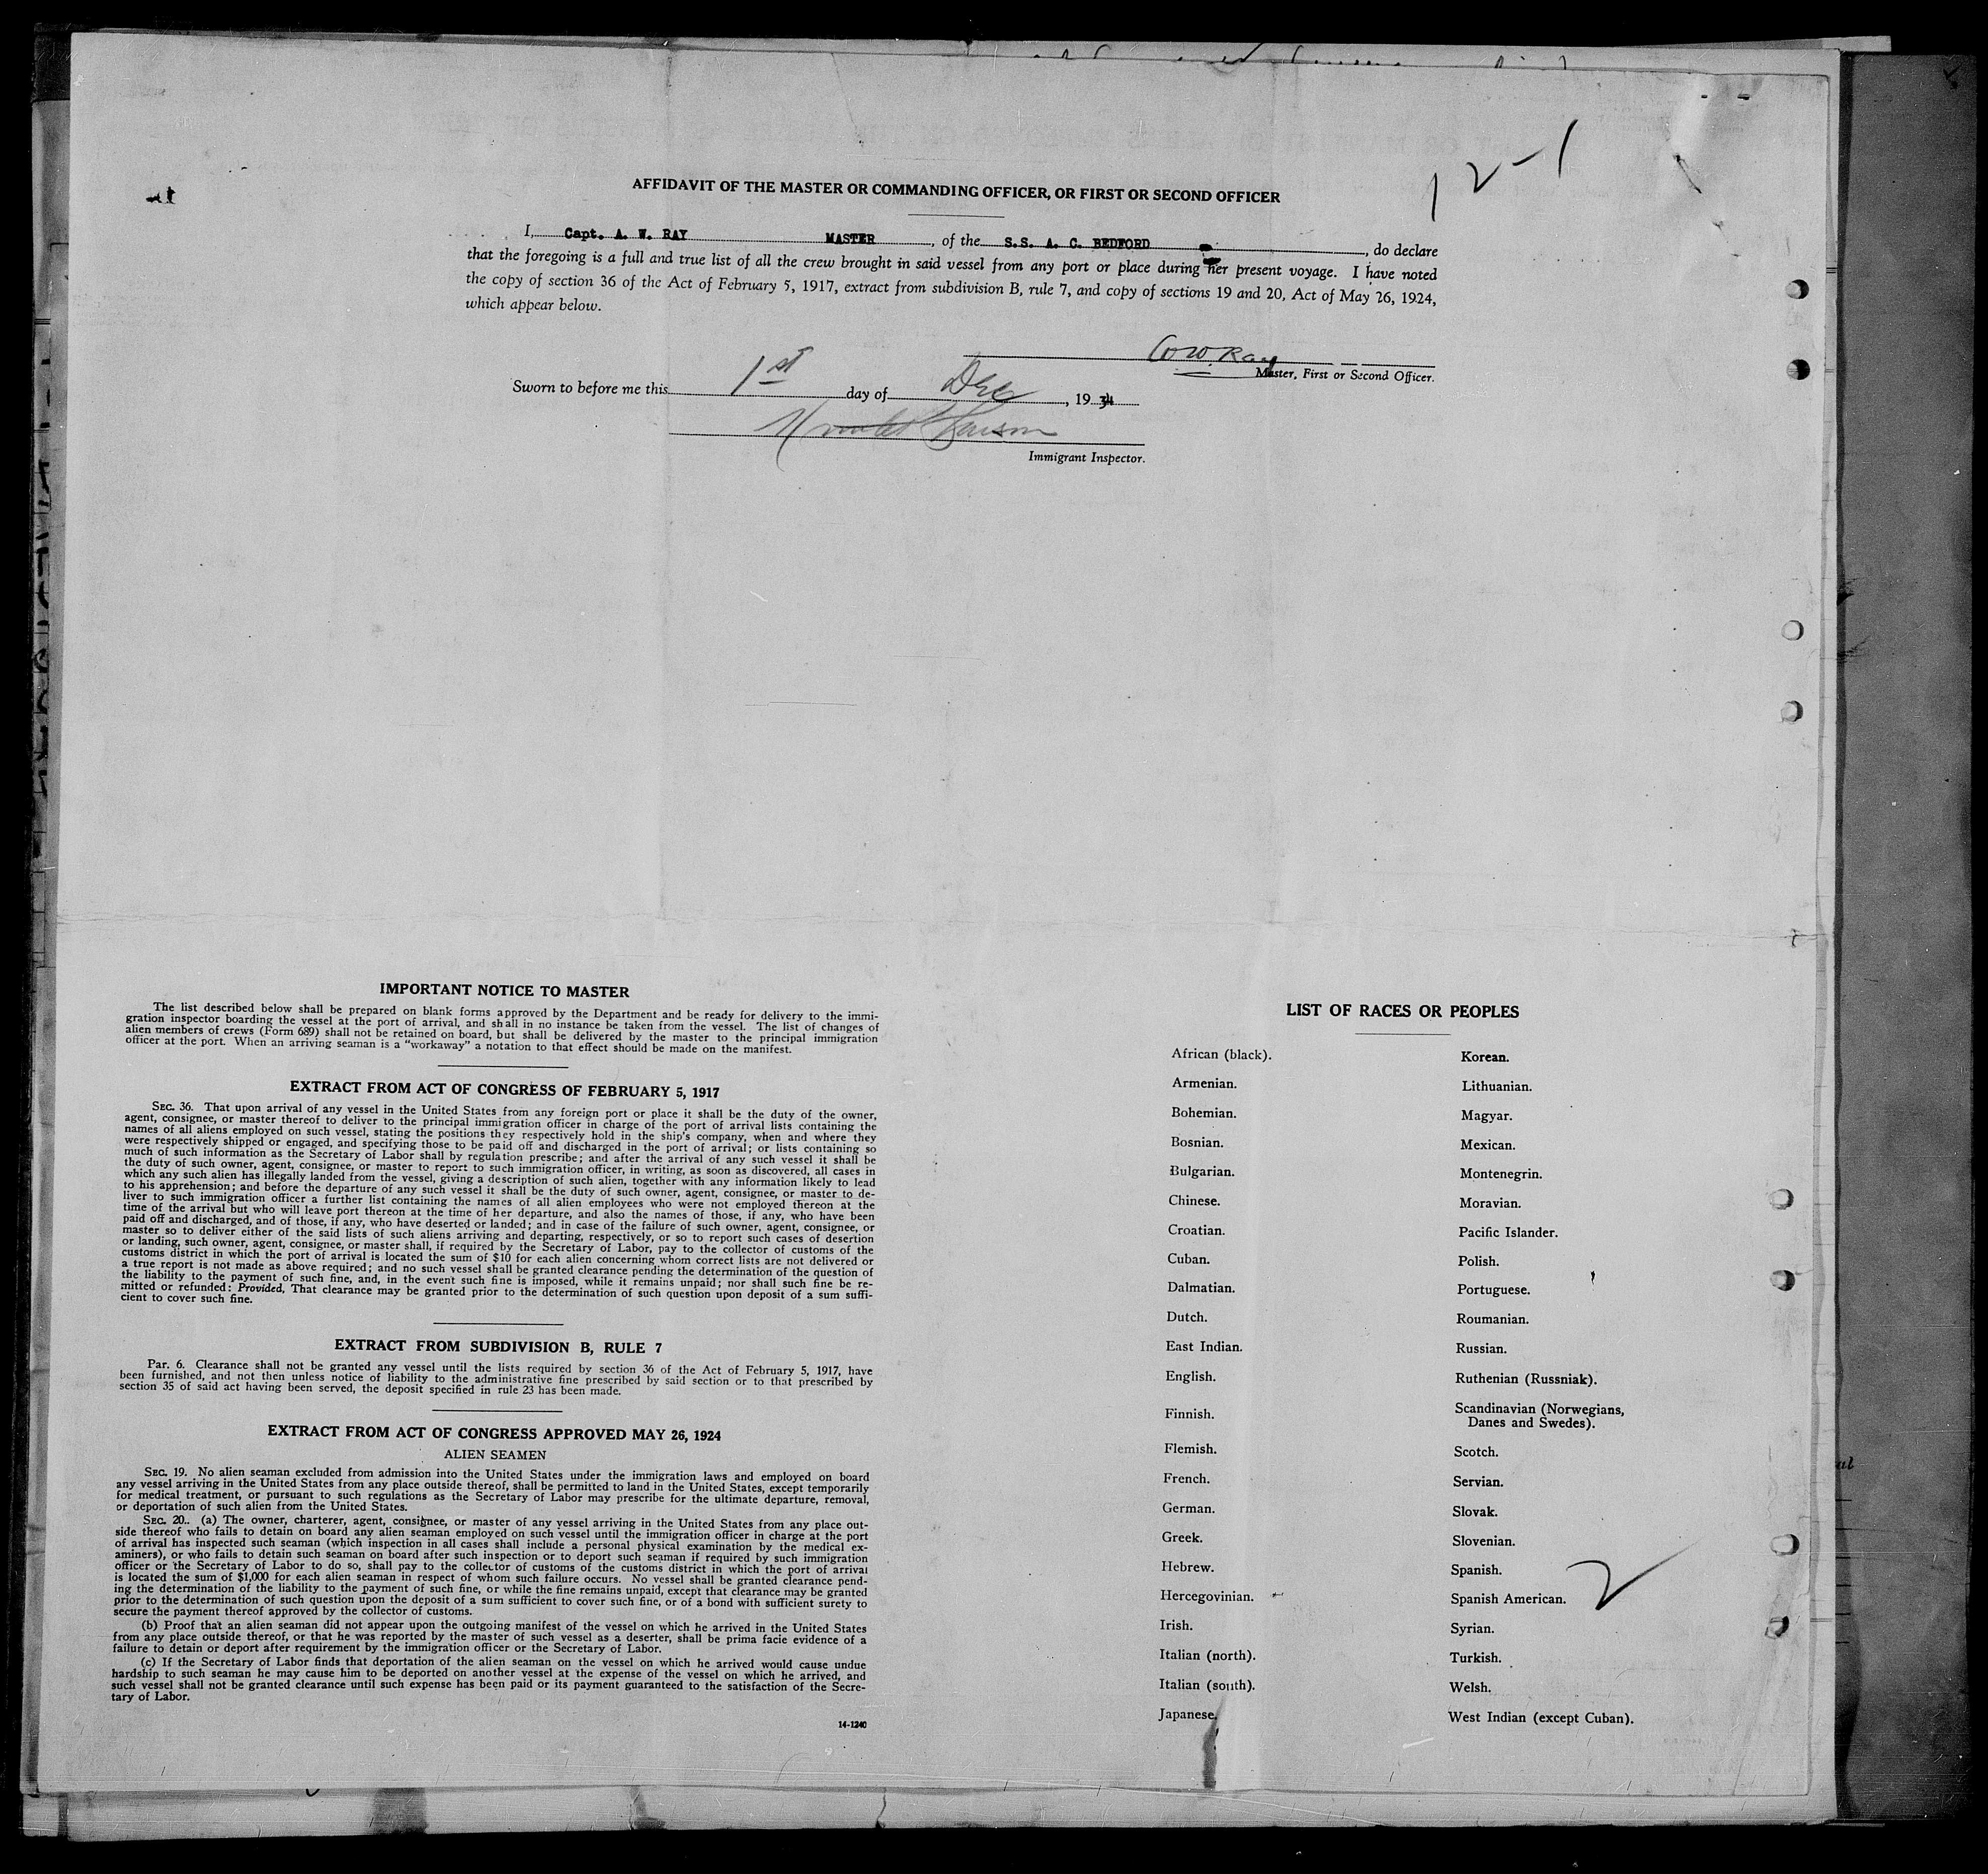 12-1
AFFIDAVIT OF THE MASTER OR COMMANDING OFFICER, OR FIRST OR SECOND OFFICER
I, Capt. A. W. RAY MASTER, of the S.S. A. C. BEDFORD, do declare
that the foregoing is a full and true list of all the crew brought in said vessel from any port or place during her present voyage. I have noted
the copy of section 36 of the Act of February 5, 1917, extract from subdivision B, rule 7, and copy of sections 19 and 20, Act of May 26, 1924,
which appear below.
Ray
Master, First or Second Officer.
Sworn to before me this 1st day of Dec, 1934
Immigrant Inspector.
IMPORTANT NOTICE TO MASTER
The list described below shall be prepared on blank forms approved by the Department and be ready for delivery to the immi-
gration inspector boarding the vessel at the port of arrival, and shall in no instance be taken from the vessel. The list of changes of
alien members of crews (Form 689) shall not be retained on board, but shall be delivered by the master to the principal immigration
officer at the port. When an arriving seaman is a "workaway" a notation to that effect should be made on the manifest.
EXTRACT FROM ACT OF CONGRESS OF FEBRUARY 5, 1917
SEC. 36. That upon arrival of any vessel in the United States from any foreign port or place it shall be the duty of the owner,
agent, consignee, or master thereof to deliver to the principal immigration officer in charge of the port of arrival lists containing the
names of all aliens employed on such vessel, stating the positions they respectively hold in the ship's company, when and where they
were respectively shipped or engaged, and specifying those to be paid off and discharged in the port of arrival; or lists containing so
much of such information as the Secretary of Labor shall by regulation prescribe; and after the arrival of any such vessel it shall be
the duty of such owner, agent, consignee, or master to report to such immigration officer, in writing, as soon as discovered, all cases in
which any such alien has illegally landed from the vessel, giving a description of such alien, together with any information likely to lead
to his apprehension; and before the departure of any such vessel it shall be the duty of such owner, agent, consignee, or master to de-
liver to such immigration officer a further list containing the names of all alien employees who were not employed thereon at the
time of the arrival but who will leave port thereon at the time of her departure, and also the names of those, if any, who have been
paid off and discharged, and of those, if any, who have deserted or landed; and in case of the failure of such owner, agent, consignee, or
master so to deliver either of the said lists of such aliens arriving and departing, respectively, or so to report such cases of desertion
or landing, such owner, agent, consignee, or master shall, if required by the Secretary of Labor, pay to the collector of customs of the
customs district in which the port of arrival is located the sum of $10 for each alien concerning whom correct lists are not delivered or
a true report is not made as above required; and no such vessel shall be granted clearance pending the determination of the question of
the liability to the payment of such fine, and, in the event such fine is imposed, while it remains unpaid; nor shall such fine be re-
mitted or refunded: Provided, That clearance may be granted prior to the determination of such question upon deposit of a sum suffi-
cient to cover such fine.
EXTRACT FROM SUBDIVISION B, RULE 7
Par. 6. Clearance shall not be granted any vessel until the lists required by section 36 of the Act of February 5, 1917, have
been furnished, and not then unless notice of liability to the administrative fine prescribed by said section or to that prescribed by
section 35 of said act having been served, the deposit specified in rule 23 has been made.
EXTRACT FROM ACT OF CONGRESS APPROVED MAY 26, 1924
ALIEN SEAMEN
SEC. 19. No alien seaman excluded from admission into the United States under the immigration laws and employed on board
any vessel arriving in the United States from any place outside thereof, shall be permitted to land in the United States, except temporarily
for medical treatment, or pursuant to such regulations as the Secretary of Labor may prescribe for the ultimate departure, removal,
or deportation of such alien from the United States.
SEC. 20.. (a) The owner, charterer, agent, consignee, or master of any vessel arriving in the United States from any place out-
side thereof who fails to detain on board any alien seaman employed on such vessel until the immigration officer in charge at the port
of arrival has inspected such seaman (which inspection in all cases shall include a personal physical examination by the medical ex-
aminers), or who fails to detain such seaman on board after such inspection or to deport such seaman if required by such immigration
officer or the Secretary of Labor to do so, shall pay to the collector of customs of the customs district in which the port of arrival
is located the sum of $1,000 for each alien seaman in respect of whom such failure occurs. No vessel shall be granted clearance pend-
ing the determination of the liability to the payment of such fine, or while the fine remains unpaid, except that clearance may be granted
prior to the determination of such question upon the deposit of a sum sufficient to cover such fine, or of a bond with sufficient surety to
secure the payment thereof approved by the collector of customs.
(b) Proof that an alien seaman did not appear upon the outgoing manifest of the vessel on which he arrived in the United States
from any place outside thereof, or that he was reported by the master of such vessel as a deserter, shall be prima facie evidence of a
failure to detain or deport after requirement by the immigration officer or the Secretary of Labor.
(c) If the Secretary of Labor finds that deportation of the alien seaman on the vessel on which he arrived would cause undue
hardship to such seaman he may cause him to be deported on another vessel at the expense of the vessel on which he arrived, and
such vessel shall not be granted clearance until such expense has been paid or its payment guaranteed to the satisfaction of the Secre-
tary of Labor.
14-1240
LIST OF RACES OR PEOPLES
African (black).
Armenian.
Bohemian.
Bosnian.
Bulgarian.
Chinese.
Croatian.
Cuban.
Dalmatian.
Dutch.
East Indian.
English.
Finnish.
Flemish.
French.
German.
Greek.
Hebrew.
Hercegovinian.
Irish.
Italian (north).
Italian (south).
Japanese.
Korean.
Lithuanian.
Magyar.
Mexican.
Montenegrin.
Moravian.
Pacific Islander.
Polish.
Portuguese.
Roumanian.
Russian.
Ruthenian (Russniak).
Scandinavian (Norwegians,
Danes and Swedes).
Scotch.
Servian.
Slovak.
Slovenian.
Spanish.
Spanish American.
Syrian.
Turkish.
Welsh.
West Indian (except Cuban).
2